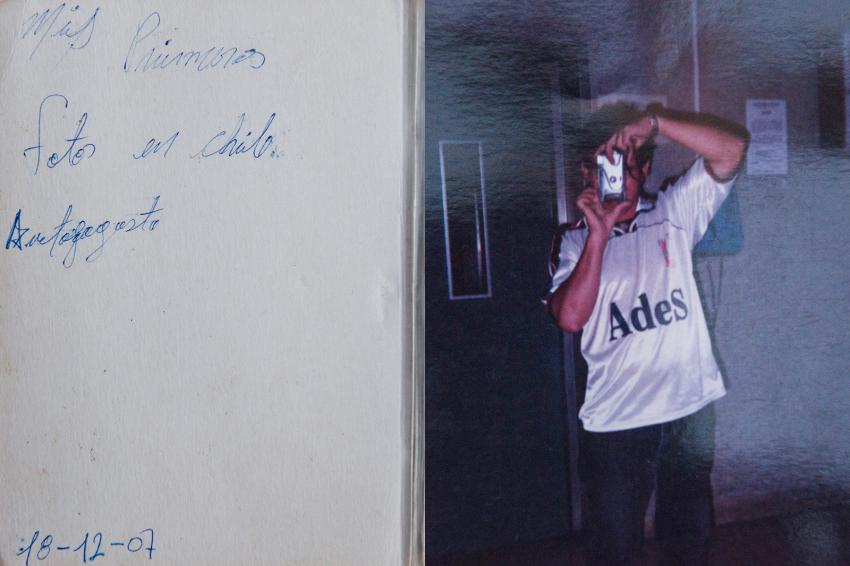 Mis
Primeros
Fotos en chile.
Antofagasta
18-12-07
AdeS